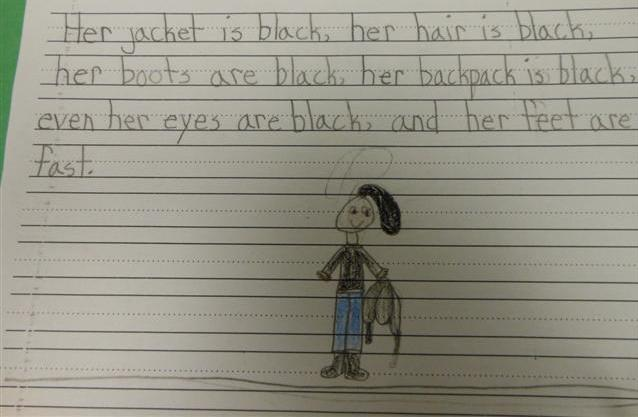 Her jacket is black, her hair is black,
her boots are black, her backpack is black,
even her eyes are black, and her feet are
fast.